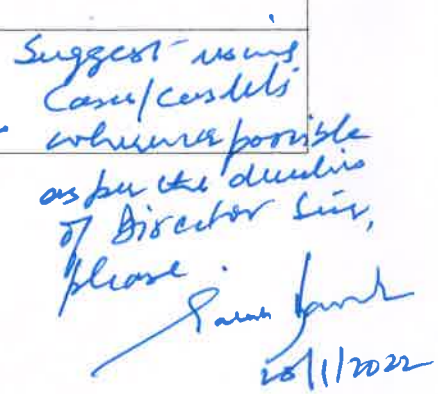 Suggest using
Case/caselets
wherever possible
as per the
of Director Sir,
please.
20/1/2022